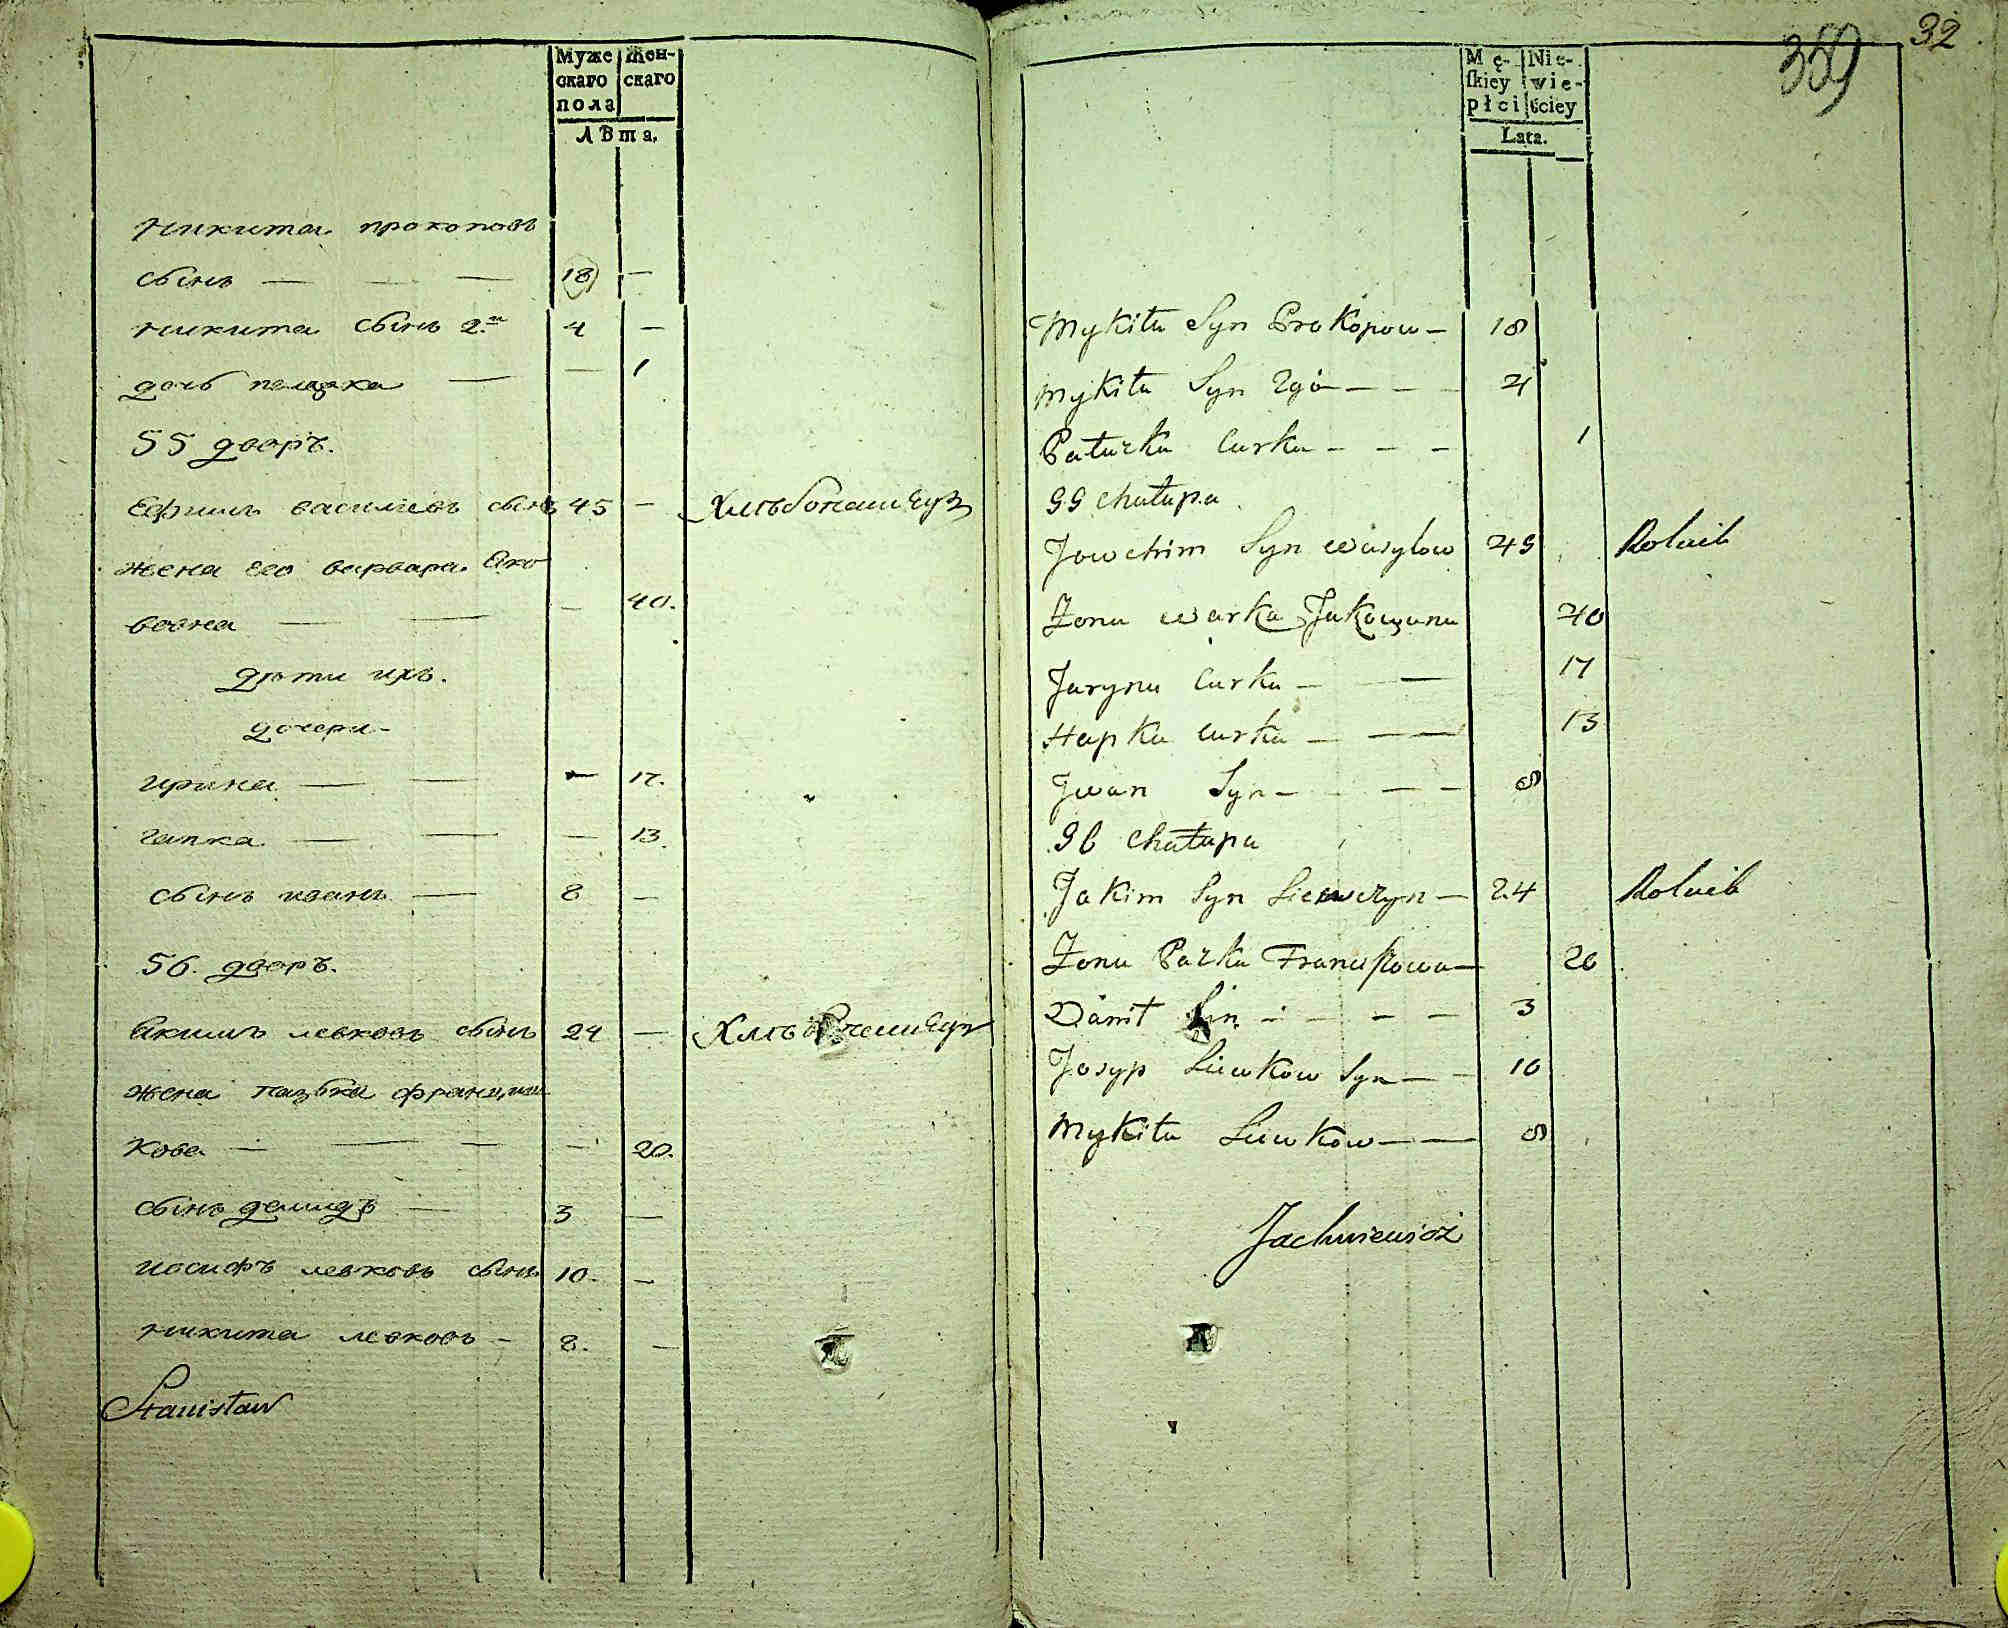 Муже Жен-
скаго скаго
пола
лѣта.
Никита прокоповъ
сынъ — — — 18 —
никита сынъ 2й 4 —
дочь палажка — — 1
55 дворъ.
Ефимъ василіевъ сынъ 45 — Хлѣбопашецъ
жена его варвара Яко
вовна — — — 40.
дѣти ихъ.
дочери-
ирина — — — 17.
гапка — — — 13.
сынъ иванъ — 8 —
56. дворъ.
Якимъ левковъ сынъ 24 — Хлѣбопашецъ
жена пазька францыш
кова — — — — 20.
сынъ демидъ — 3 —
иосифъ левковъ сынъ 10. —
никита левковъ — 8. —
Stanisław
32
359
Mę- Nie-
skiey wie-
płci ściey
Lata.
Mykita Syn Prokopow — 18
Mykita Syn 2gi — — — 4
Pałazka Curka — — — 1
55 Chałupa
Jowchim Syn Wasylow 45 Rolnik
Zona Warka Jakowana 40
Jaryna Curka — — 17
Hapka Curka — — — 13
Jwan Syn — — — 8
56 Chałupa
Jakim Syn — 24 Rolnik
Zona Pazka 20
Danił Sin — — — — 3
Josyp Liewkow Syn — — 10
Mykita Liewkow — — 8
Jachniewicz